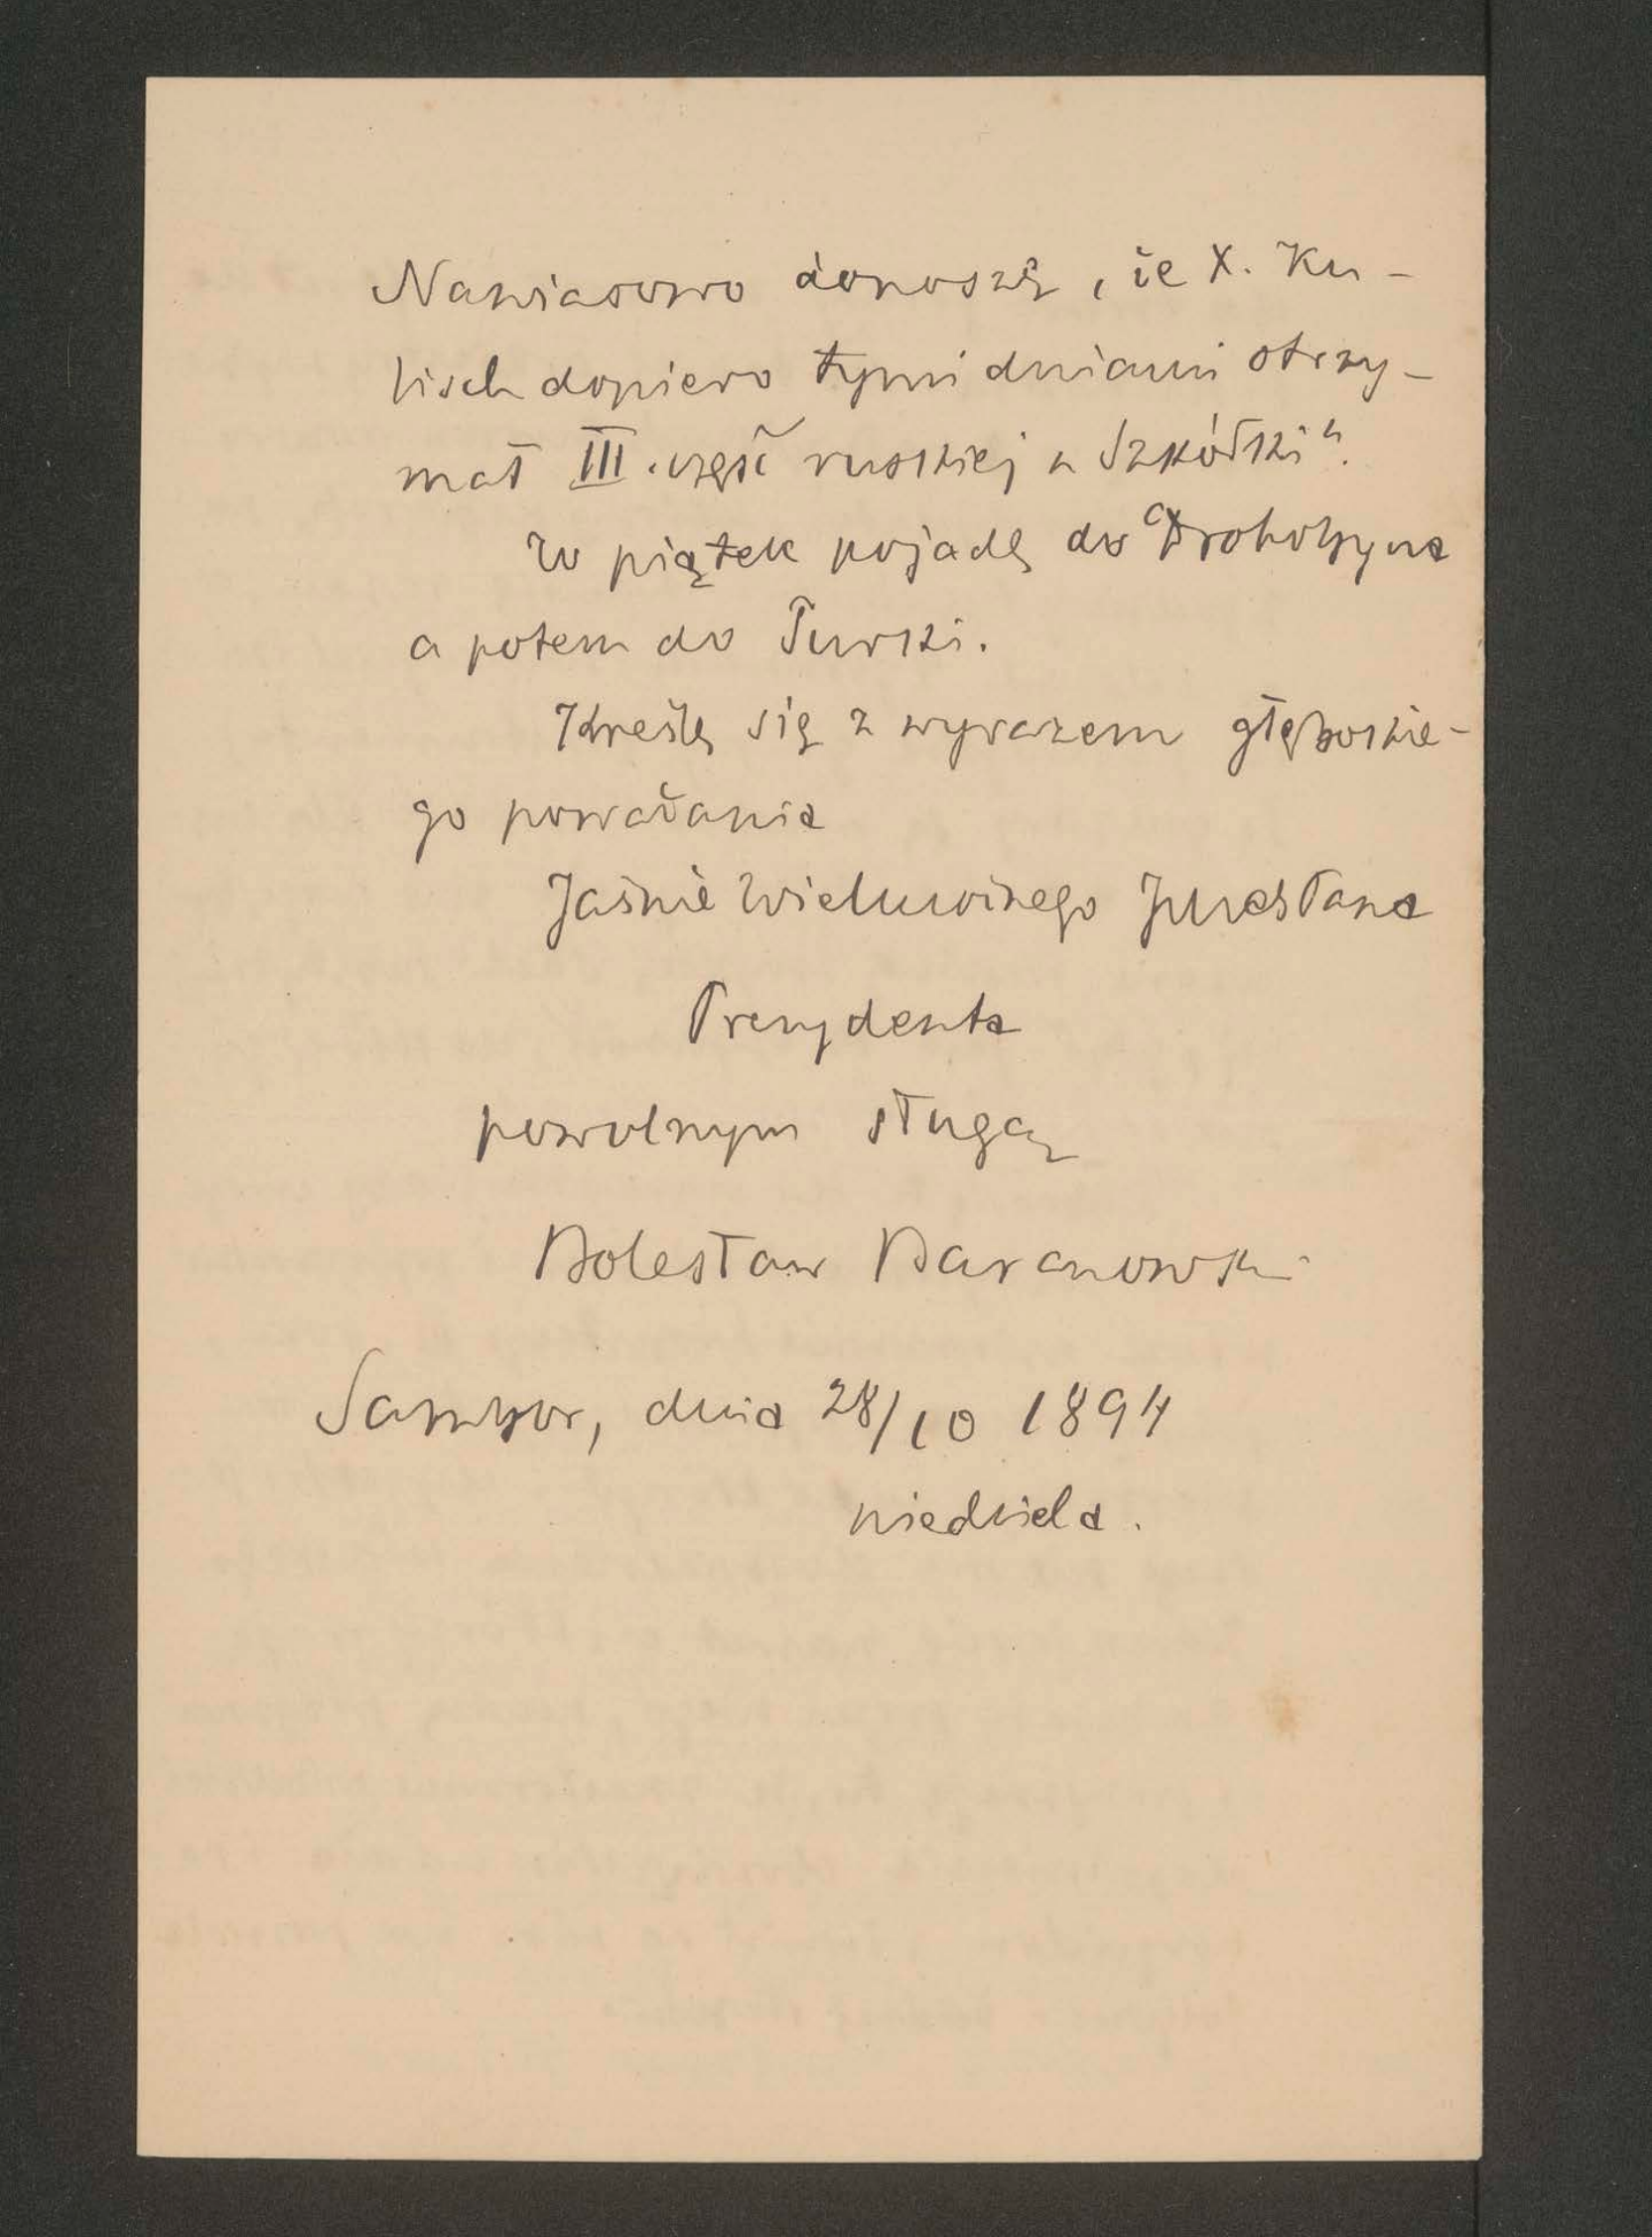 Nawiasowo donoszę, że X. Ku-
lisch dopiero tymi dniami otrzy-
mał III. część ruskiej „Szkółki“.
W piątek pojadę do Drohobycza
a potem do Turki.
Kreślę się z wyrazem głębokie-
go poważania
Jaśnie Wielmożnego Pana
Prezydenta
powolnym sługą
Bolesław Baranowski
Sambor, dnia 28/10 1894
niedziela.